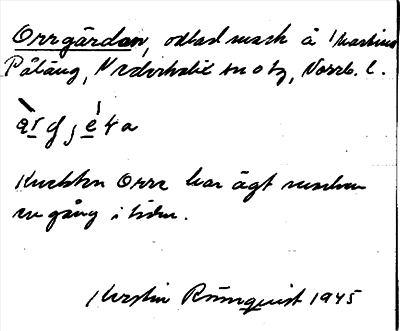 Orrgärdan, odlad mark å
Påläng, Nederkalix sn o tg, Norrb. l.
Knekten Orre har ägt marken
en gång i tiden.
Kerstin Rönnquist 1945